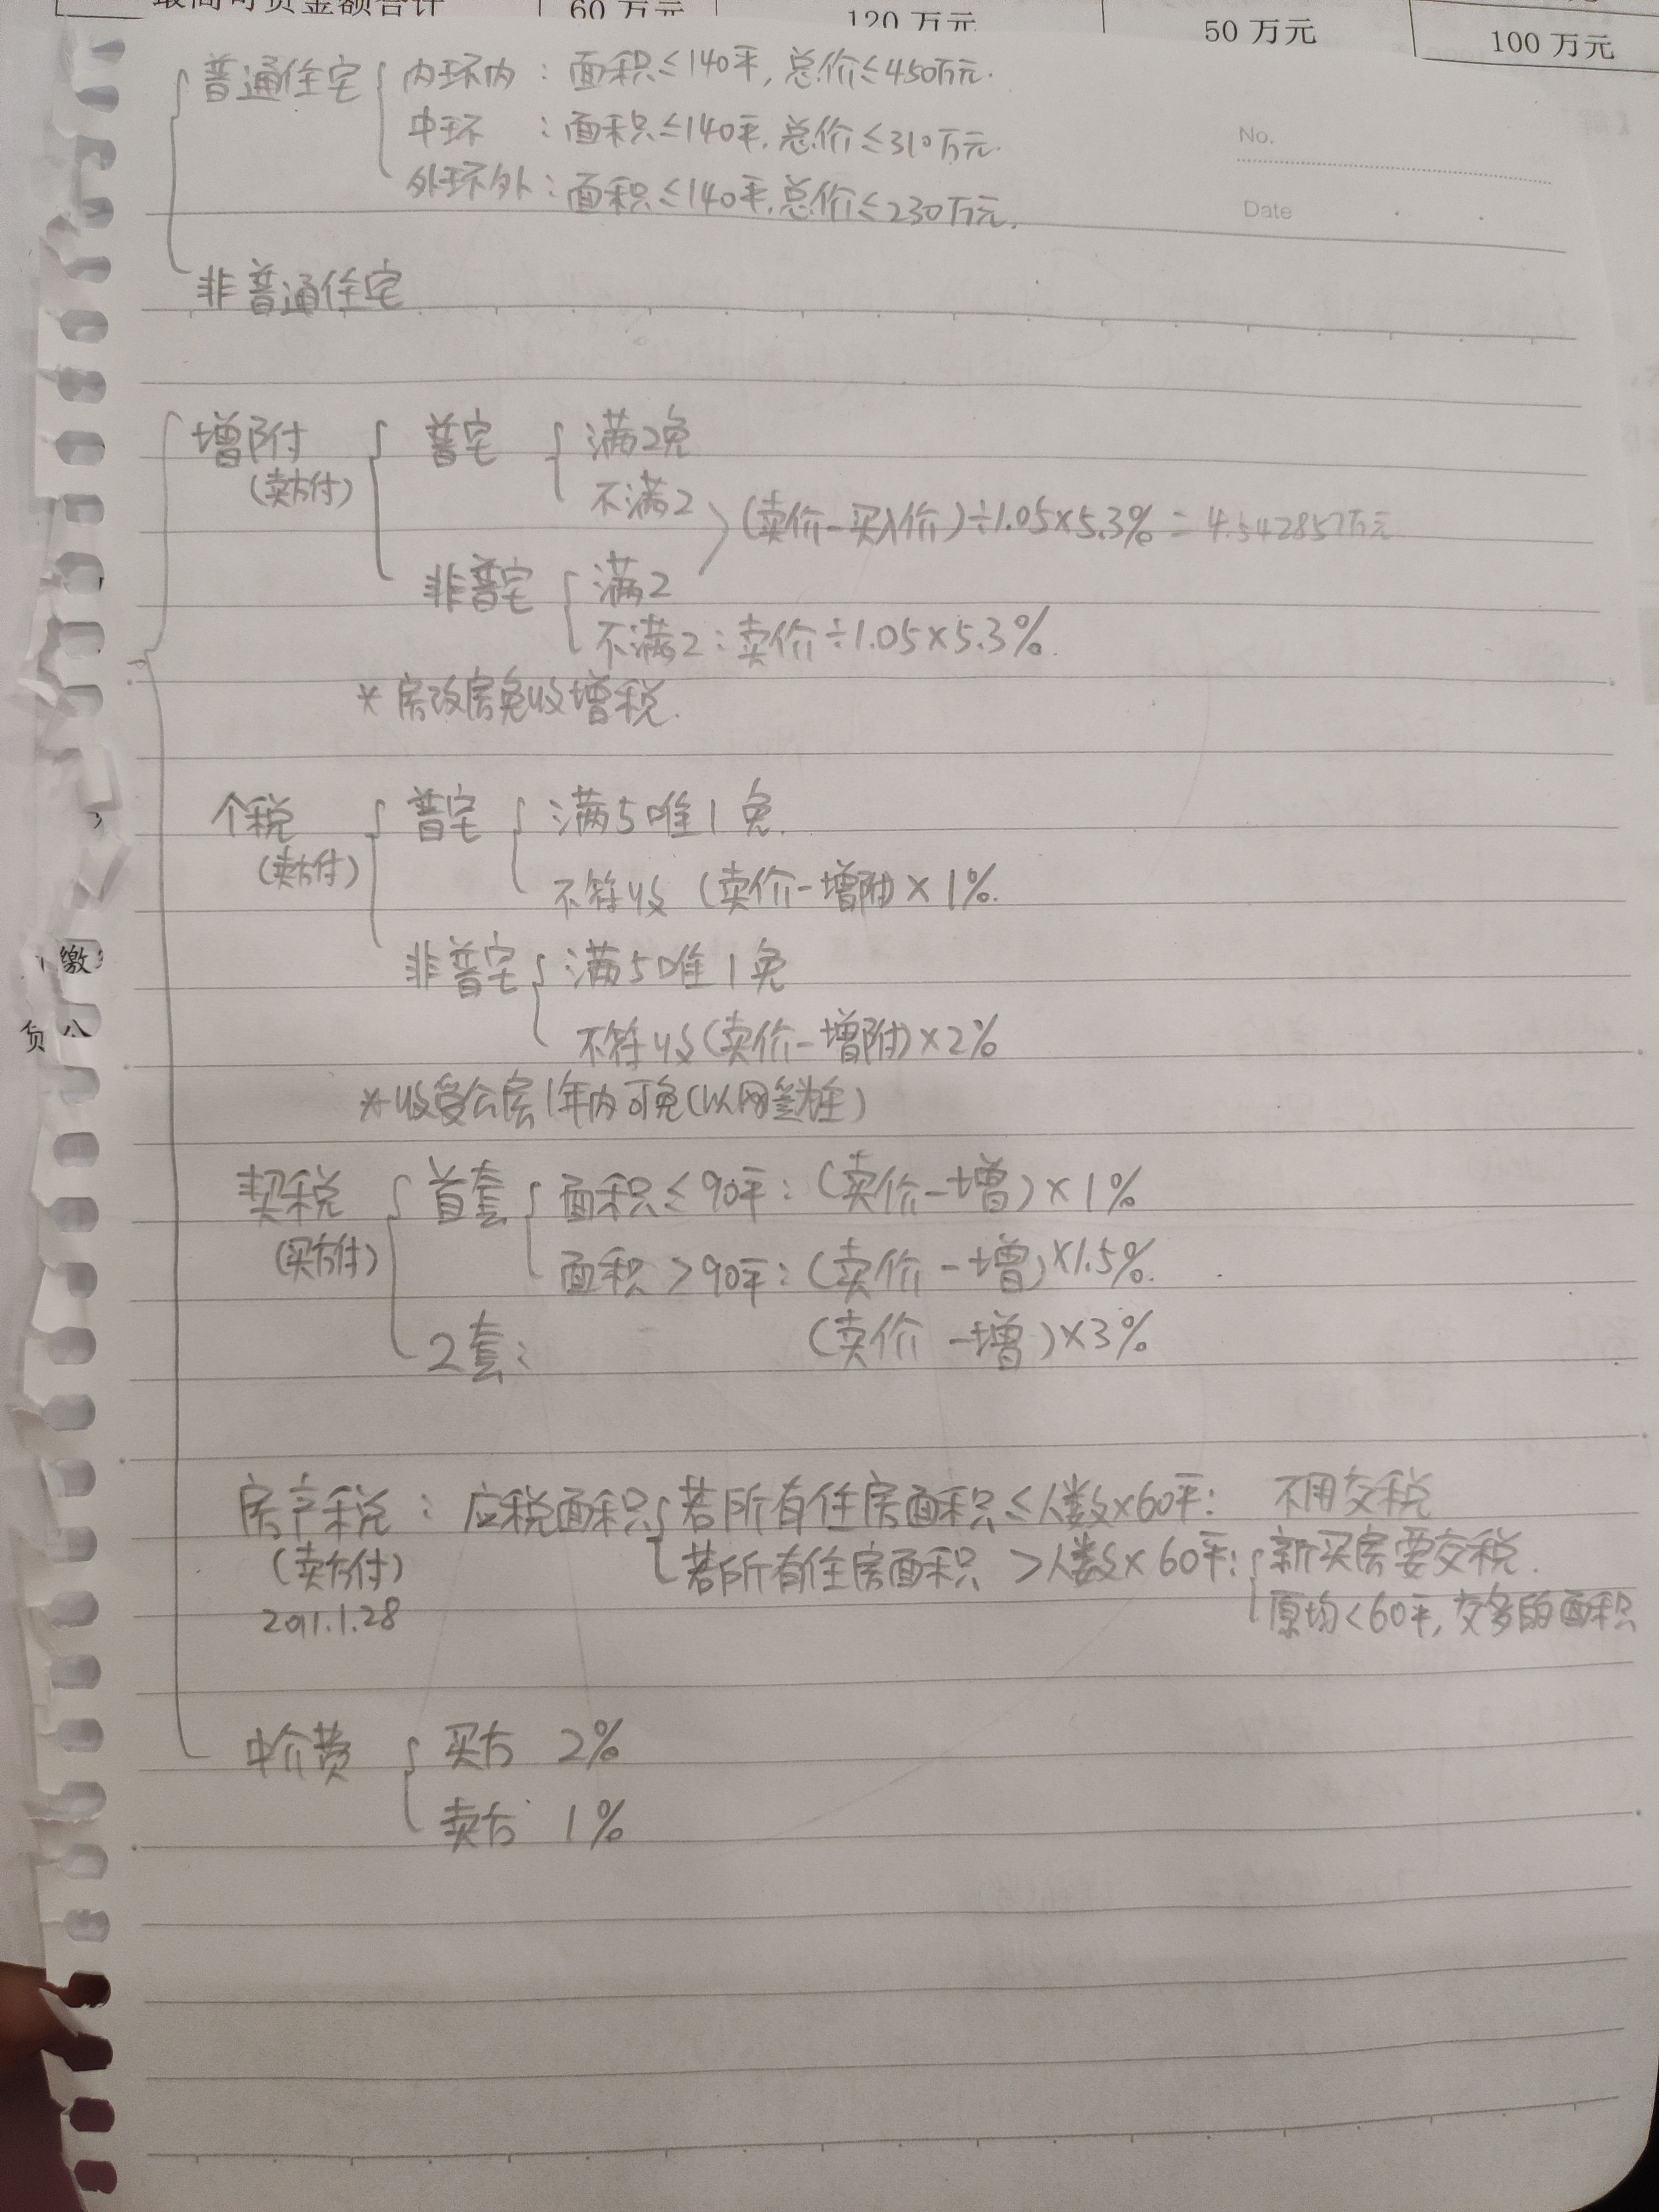 60万元 120万元 50万元 100万元
普通住宅 内环内：面积≤140平，总价≤450万元.
中环：面积≤140平，总价≤310万元.
外环外：面积≤140平，总价≤230万元.
No.
Date
非普通住宅
增附 普宅 满2免
(卖方付)
不满2
(卖价-买入价)÷1.05×5.3% = 4.542857万元
非普宅 满2
不满2：卖价÷1.05×5.3%.
*房改房免收增税.
个税 普宅 满5唯1免.
(卖方付)
不符收 (卖价-增附)×1%.
非普宅 满5唯1免
不符收(卖价-增附)×2%
*收受公房1年内可免(以网签为准)
契税 首套 面积≤90平：(卖价-增)×1%
(买方付)
面积>90平：(卖价-增)×1.5%.
2套： (卖价-增)×3%
房产税：应税面积 若所有住房面积≤人数×60平： 不用交税
(卖方付) 若所有住房面积>人数×60平： 新买房要交税.
2011.1.28 原均<60平，交多的面积
中介费 买方 2%
卖方 1%
缴